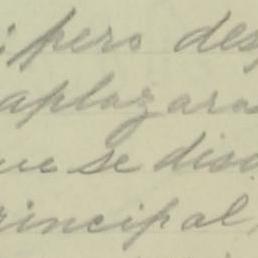 ; pero des
aplazara
ue se disc
rincipal,